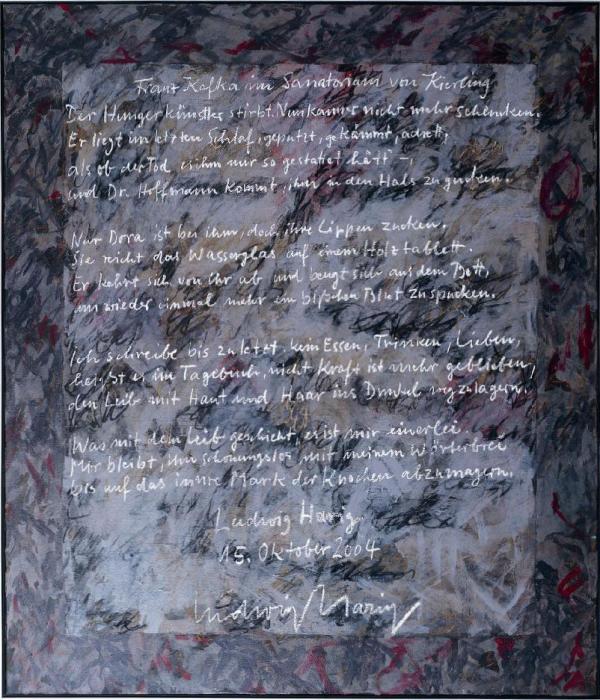 Franz Kafka im Sanatorium von Kierling
Der Hungerkünstler stirbt. Nun kann er nicht mehr schlucken.
Er liegt im letzten Schlaf, geputzt, gekämmt, adrett,
als ob der Tod es ihm nur so gestattet hätt –,
und Dr. Hoffmann kommt, ihm in den Hals zu gucken.
Nur Dora ist bei ihm, doch ihre Lippen zucken.
Sie reicht das Wasserglas auf einem Holztablett.
Er kehrt sich von ihr ab und beugt sich aus dem Bett,
um wieder einmal mehr ein bißchen Blut zu spucken.
Ich schreibe bis zuletzt, kein Essen, Trinken, Lieben,
heißt es im Tagebuch, nicht Kraft ist mehr geblieben,
den Leib mit Haut und Haar ins Dunkel wegzulagern.
Was mit dem Leib geschieht, es ist mir einerlei.
Mir bleibt, ihn schonungslos mit meinem Wörterbrei
bis auf das innre Mark der Knochen abzumagern.
Ludwig Harig
15. Oktober 2004
Ludwig Harig